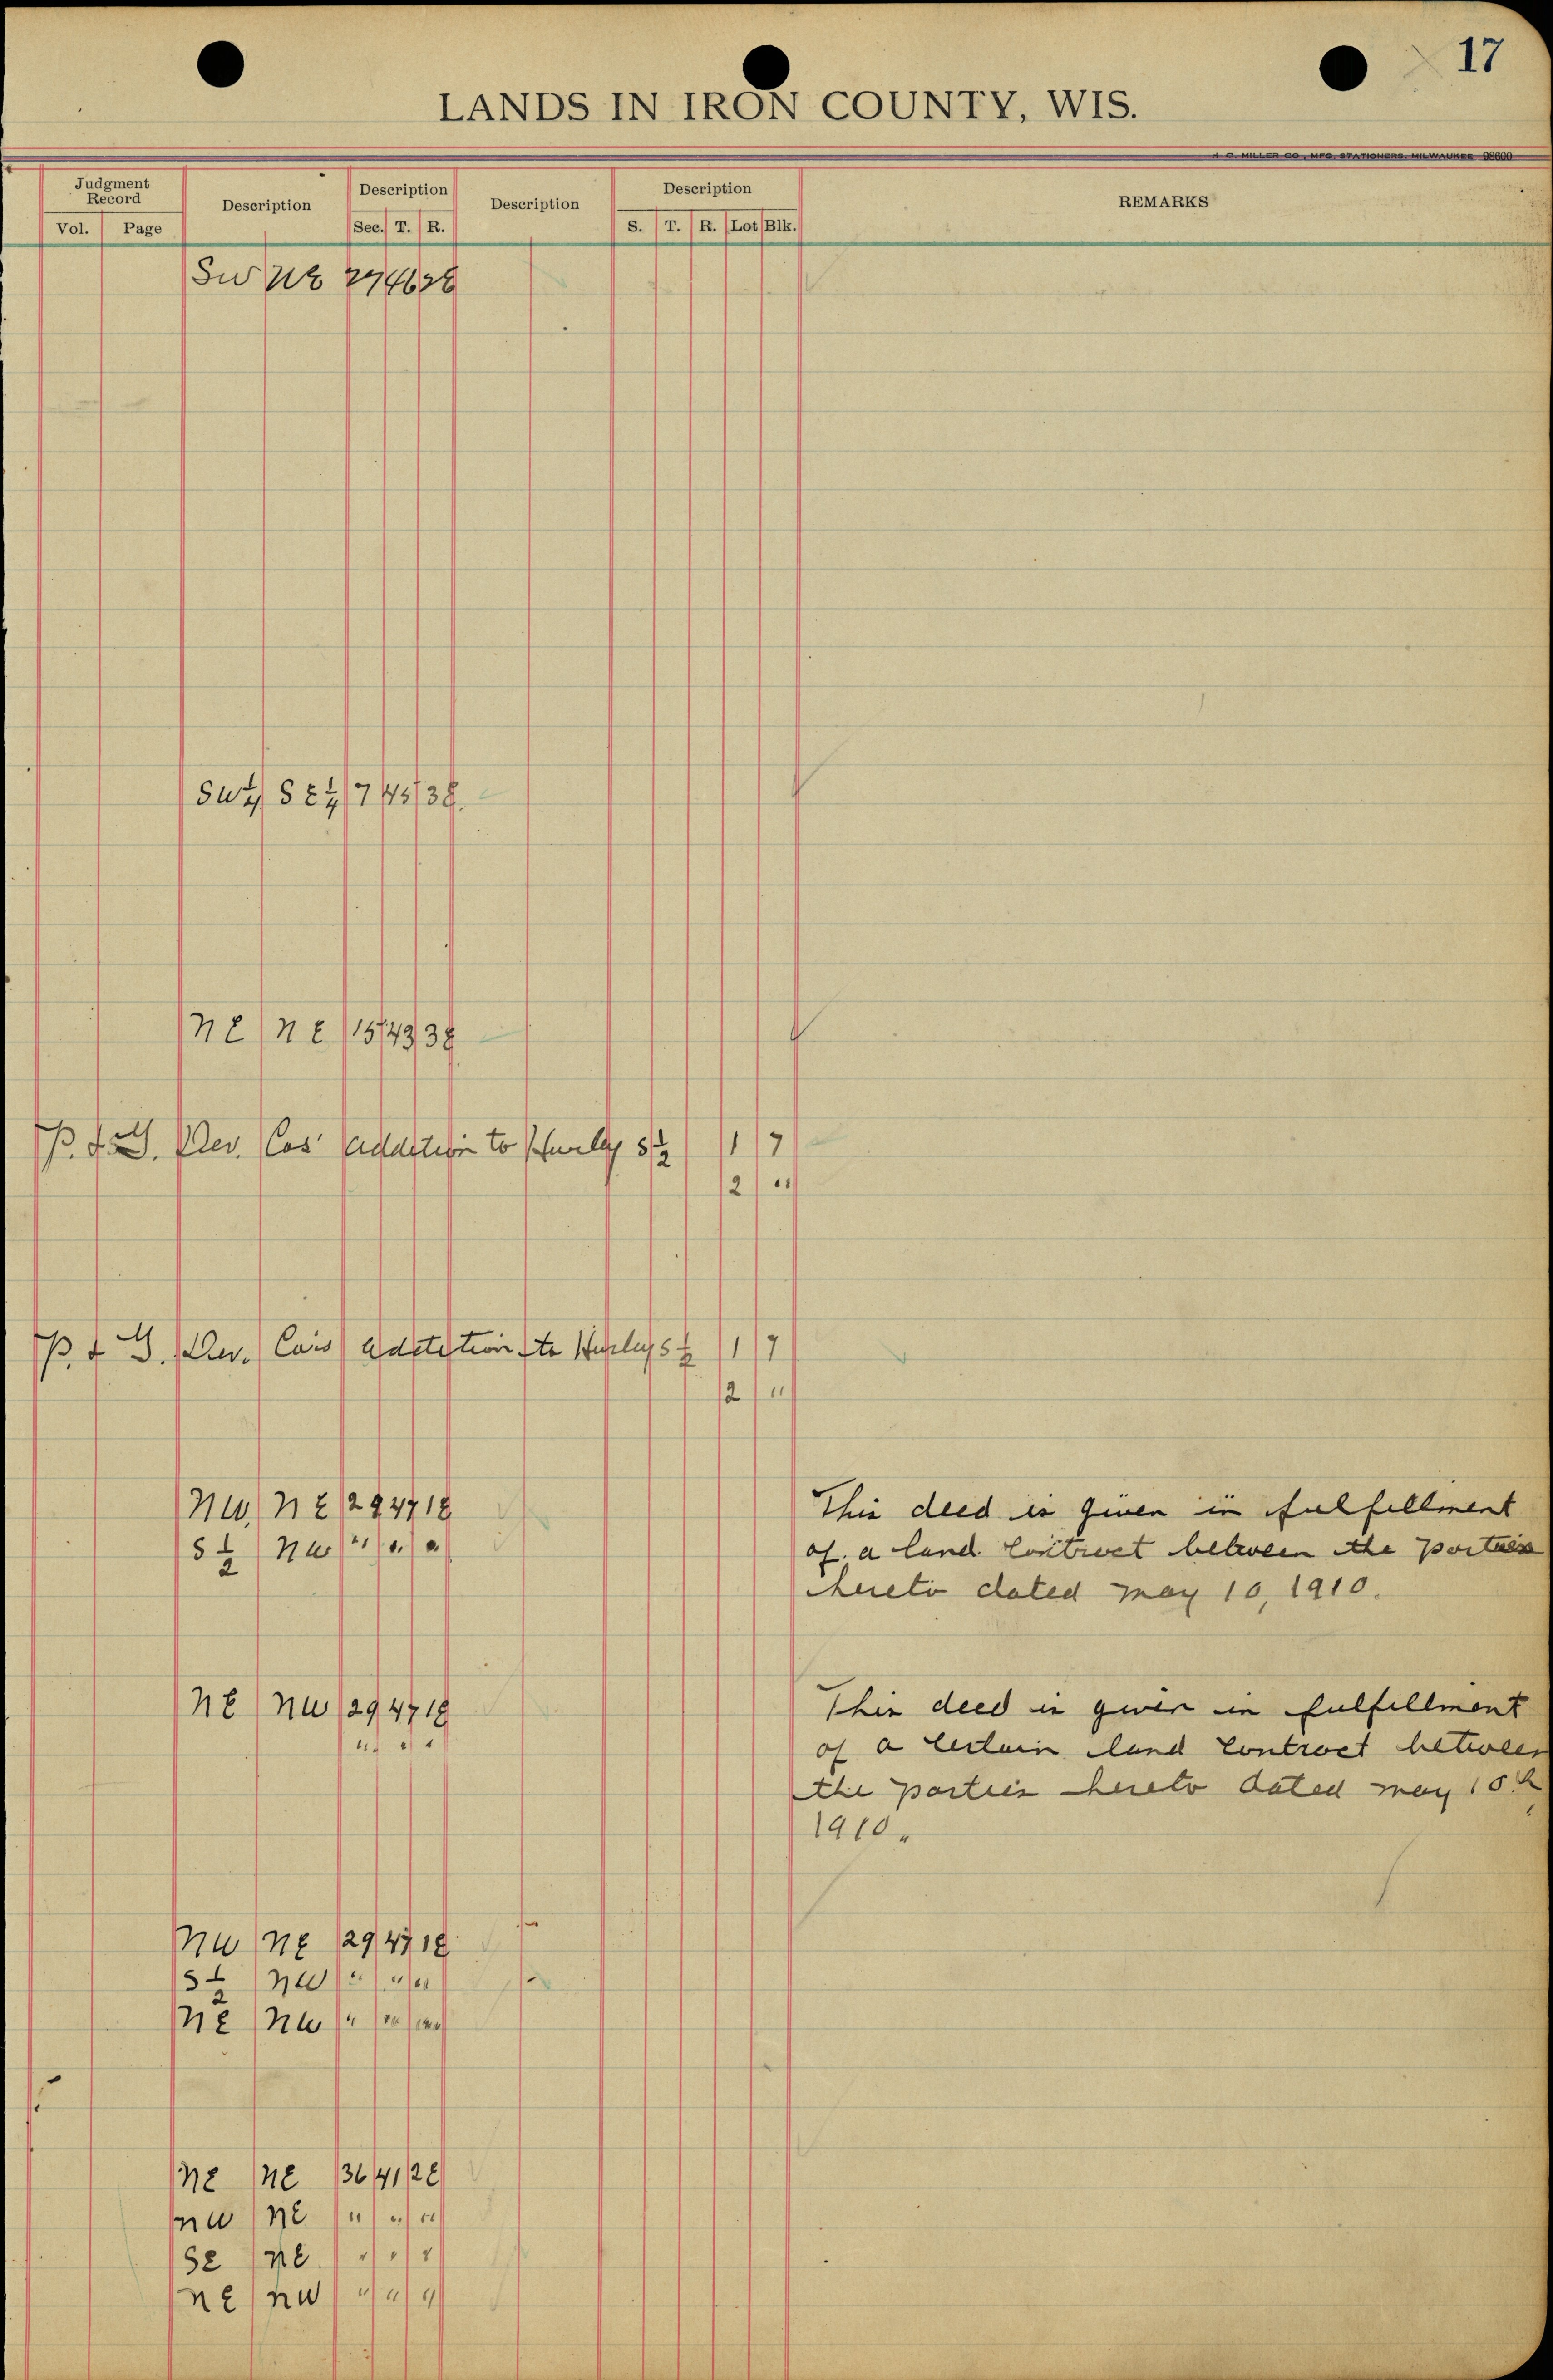 17
LANDS IN IRON COUNTY, WIS.
H. C. MILLER CO., MFG. STATIONERS, MILWAUKEE 98600
Judgment Record Description Description Description Description REMARKS
Vol. Page Sec. T. R. S. T. R. Lot Blk.
SW NE 27 46 2E
SW¼ SE¼ 7 45 3E.
NE NE 15 43 3E
P. & G. Dev. Cos' addition to Hurley S½ 1 7
2 "
P. & G. Dev. Co's addition to Hurley S½ 1 7
2 "
NW NE 29 47 1E This deed is given in fulfillment
S½ NW " " " of a land Contract between the parties
hereto dated May 10, 1910.
NE NW 29 47 1E This deed is given in fulfillment
" " " of a certain land contract between
the parties hereto dated May 10th
1910.
NW NE 29 47 1E
S½ NW " " "
NE NW " " "
NE NE 36 41 2E
NW NE " " "
SE NE " " "
NE NW " " "